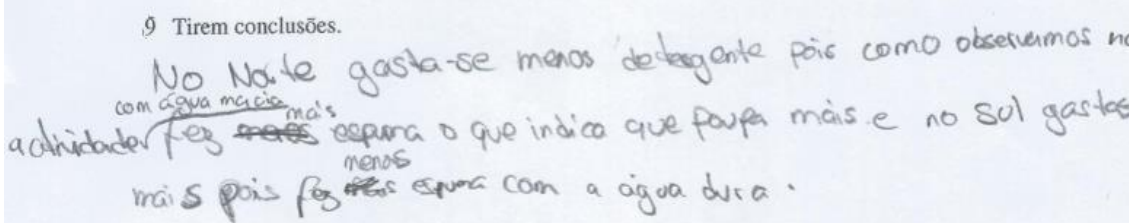 9 Tirem conclusões.
No Norte gasta-se menos detergente pois como observamos na
com água macia mais
actividade fez espuma o que indica que poupa mais e no Sul gastas
menos
mais pois fez espuma com a água dura.